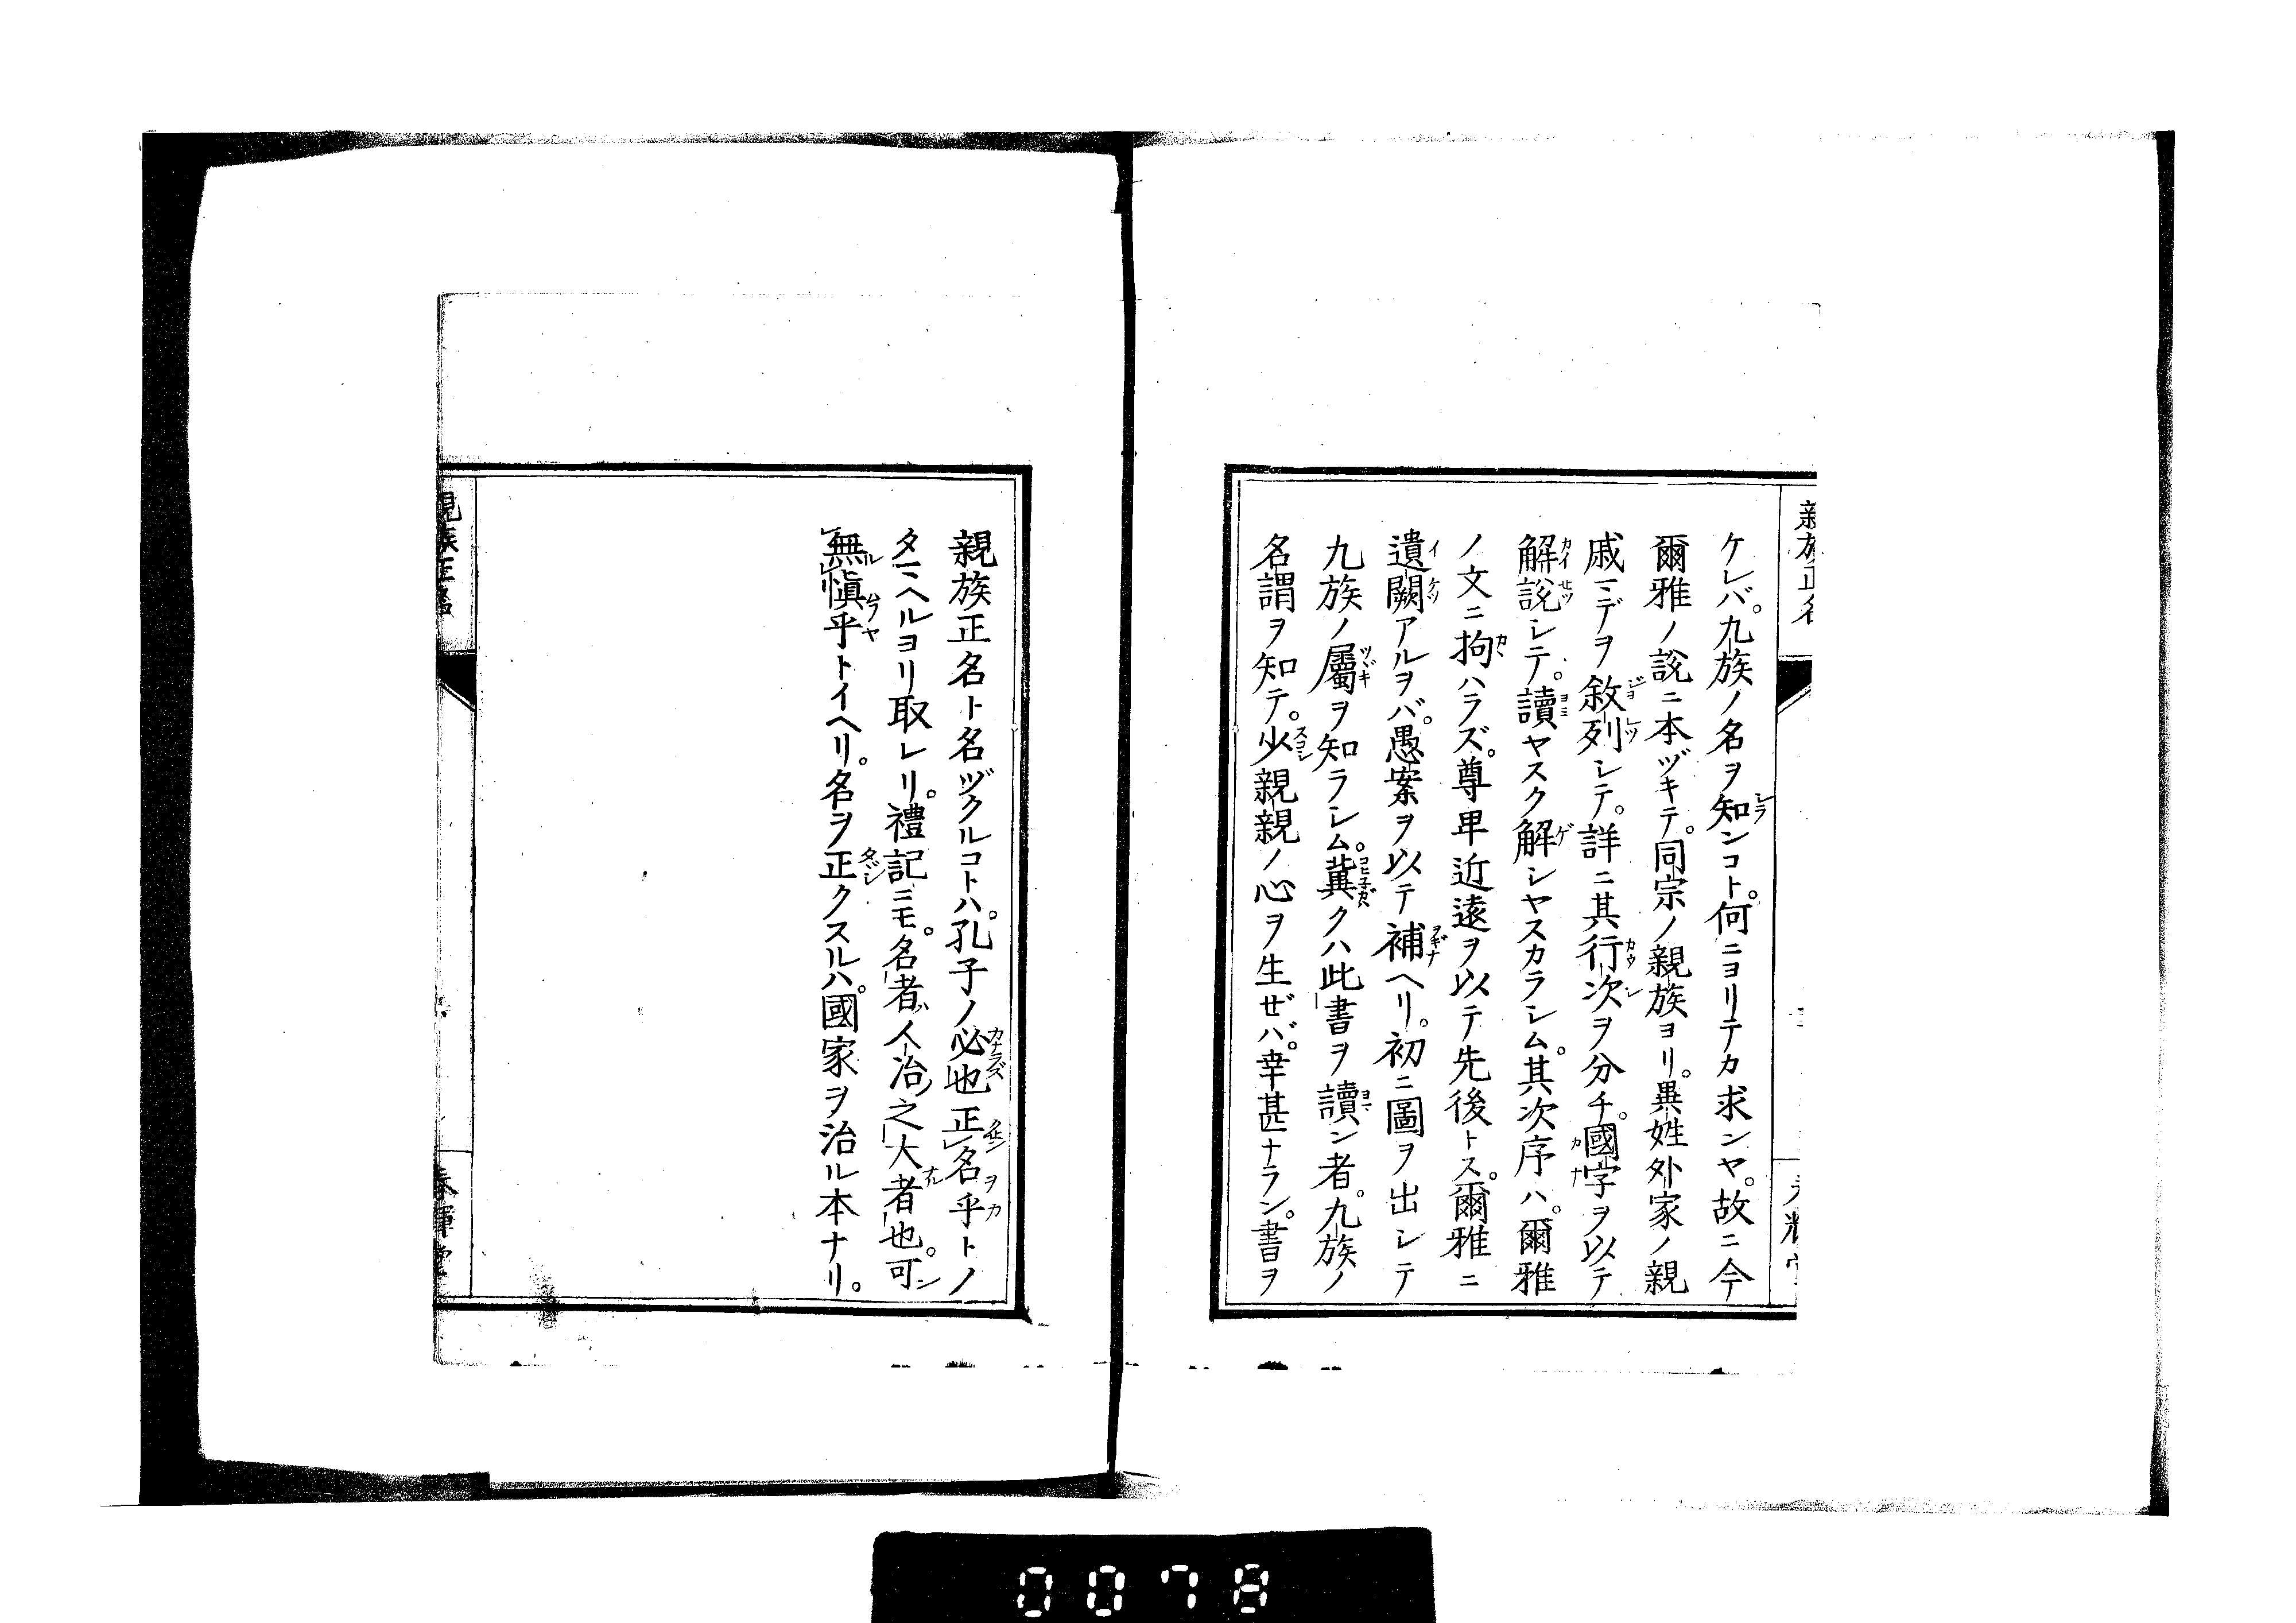 親族正名
ケレバ。九族ノ名ヲ知ンコト。何ニヨリテカ求ンヤ。故ニ今
爾雅ノ説ニ本ヅキテ。同宗ノ親族ヨリ。異姓外家ノ親
戚ニデヲ敘列シテ。詳ニ其行次ヲ分チ。國字ヲ以テ
解説シテ。讀ヤスク解シヤスカラシム。其次序ハ。爾雅
ノ文ニ拘ハラズ。尊卑近遠ヲ以テ先後トス。爾雅ニ
遺闕アルヲバ。愚案ヲ以テ補ヘリ。初ニ圖ヲ出シテ
九族ノ屬ヲ知ラシム。冀クハ此書ヲ讀ン者。九族ノ
名謂ヲ知テ。少親親ノ心ヲ生ゼバ。幸甚ナラン。書ヲ
親族正名ト名ヅクルコトハ。孔子ノ必也正名乎トノ
タニヘルヨリ取レリ。禮記ニモ。名者人治之大者也。可
無愼乎トイヘリ。名ヲ正クスルハ。國家ヲ治ル本ナリ。
親族正名
春暉堂
0078